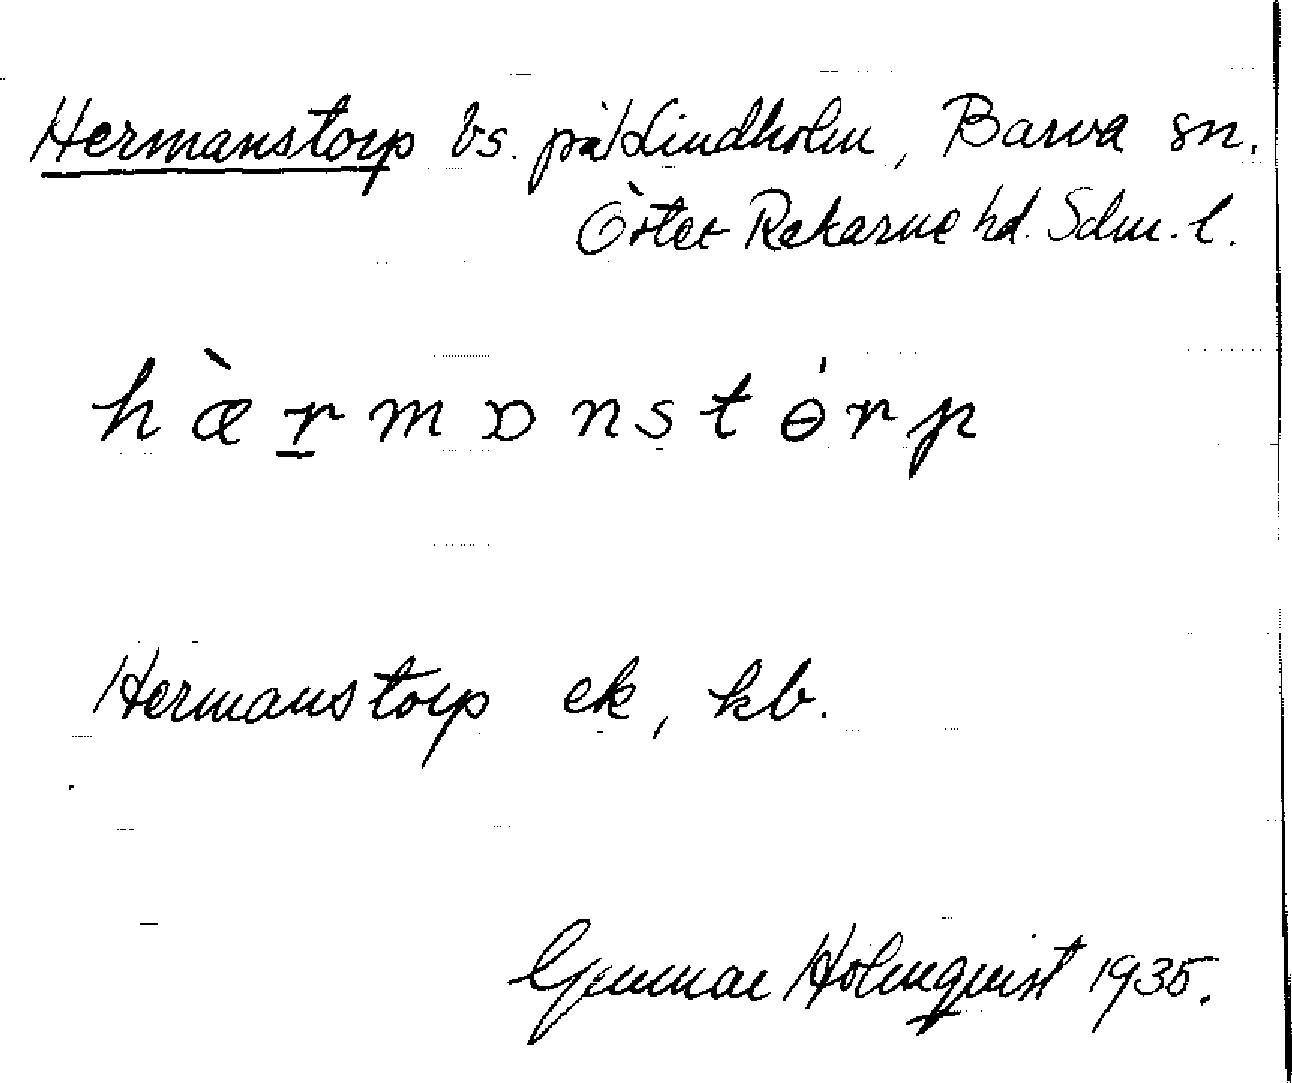 Hermanstorp bs. på Lindholm, Barva sn.
Öster Rekarne hd. Sdm. l.
hæ̀r̲mɒnstɵ́rp
Hermanstorp ek, kb.
Gunnar Holmquist 1935.